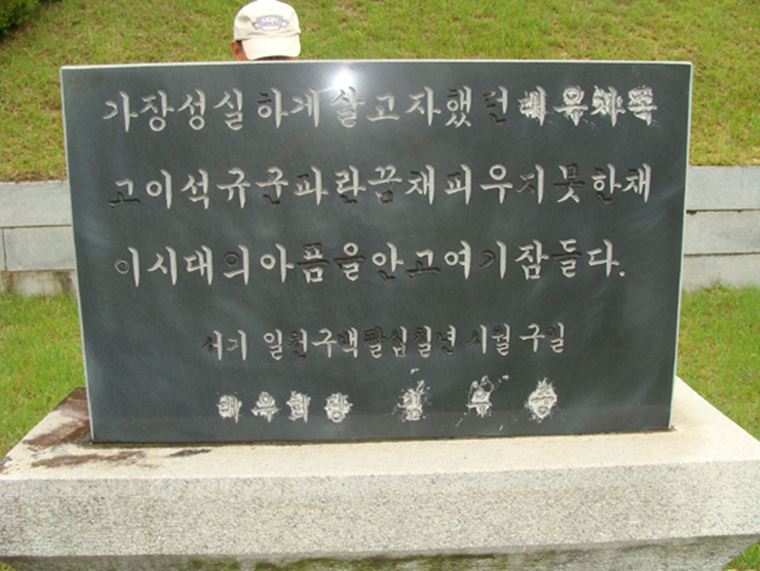 가장성실하게 살고자했던 대우가족
고이석규군 파란꿈채피우지못한채
이시대의아픔을안고여기잠들다.
서기 일천구백팔십칠년 시월 구일
대우회장